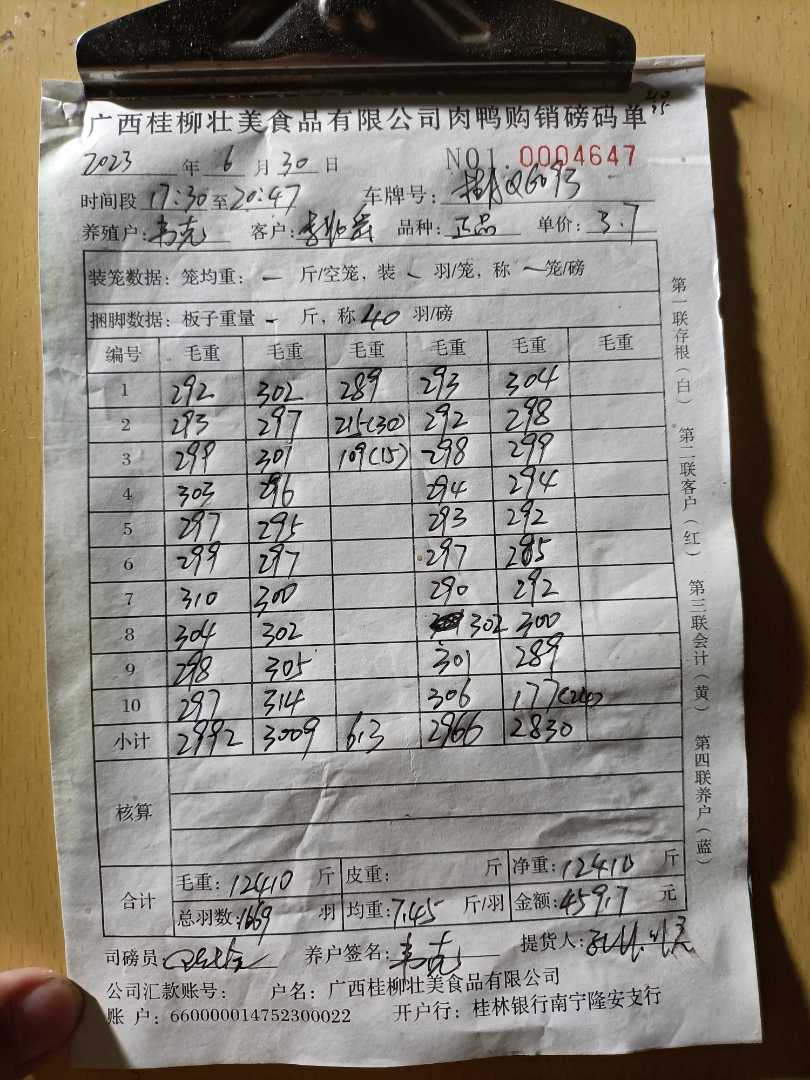 广西桂柳壮美食品有限公司肉鸭购销磅码单
2023 年 6 月 30 日 NO1. 0004647
时间段 17:30 至 20:47 车牌号:
养殖户: 韦克 客户: 品种: 正品 单价: 3.7
装笼数据: 笼均重: — 斤/空笼, 装 — 羽/笼, 称 — 笼/磅
捆脚数据: 板子重量 — 斤, 称 40 羽/磅
编号 毛重 毛重 毛重 毛重 毛重 毛重
1 292 302 289 293 304
2 293 297 215(30) 292 298
3 299 301 109(15) 298 299
4 303 296 294 294
5 297 295 293 292
6 299 297 297 285
7 310 300 290 292
8 304 302 302 300
9 298 305 301 289
10 297 314 306 177(24)
小计 2992 3009 613 2966 2830
核算
合计 毛重: 12410 斤 皮重: 斤 净重: 12410 斤
总羽数: 1669 羽 均重: 7.45 斤/羽 金额: 45917 元
司磅员: 养户签名: 韦克 提货人:
公司汇款账号: 户名: 广西桂柳壮美食品有限公司
账 户: 660000014752300022 开户行: 桂林银行南宁隆安支行
第一联存根(白) 第二联客户(红) 第三联会计(黄) 第四联养户(蓝)